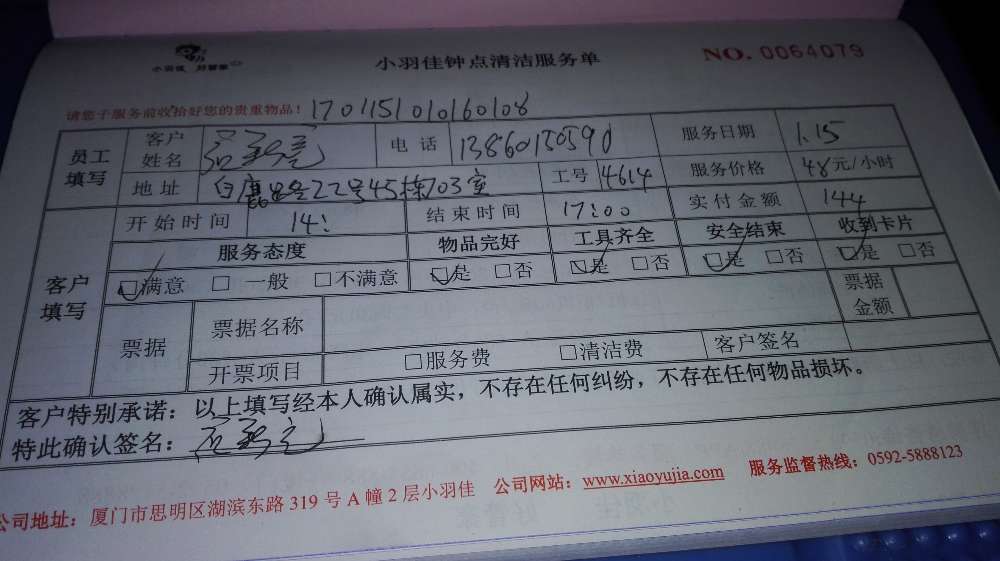 小羽佳 好管家
小羽佳钟点清洁服务单
NO. 0064079
请您于服务前收拾好您的贵重物品! 1701151010160108
员工填写 客户姓名 电话 13860150590 服务日期 1.15
地址 白鹿路22号45栋703室 工号 4614 服务价格 48元/小时
客户填写 开始时间 14: 结束时间 17:00 实付金额 144
服务态度 物品完好 工具齐全 安全结束 收到卡片
☑满意 □一般 □不满意 ☑是 □否 ☑是 □否 ☑是 □否 ☑是 □否
票据 票据名称 票据金额
开票项目 □服务费 □清洁费 客户签名
客户特别承诺:以上填写经本人确认属实,不存在任何纠纷,不存在任何物品损坏。
特此确认签名:
公司地址:厦门市思明区湖滨东路319号A幢2层小羽佳 公司网站:www.xiaoyujia.com 服务监督热线:0592-5888123